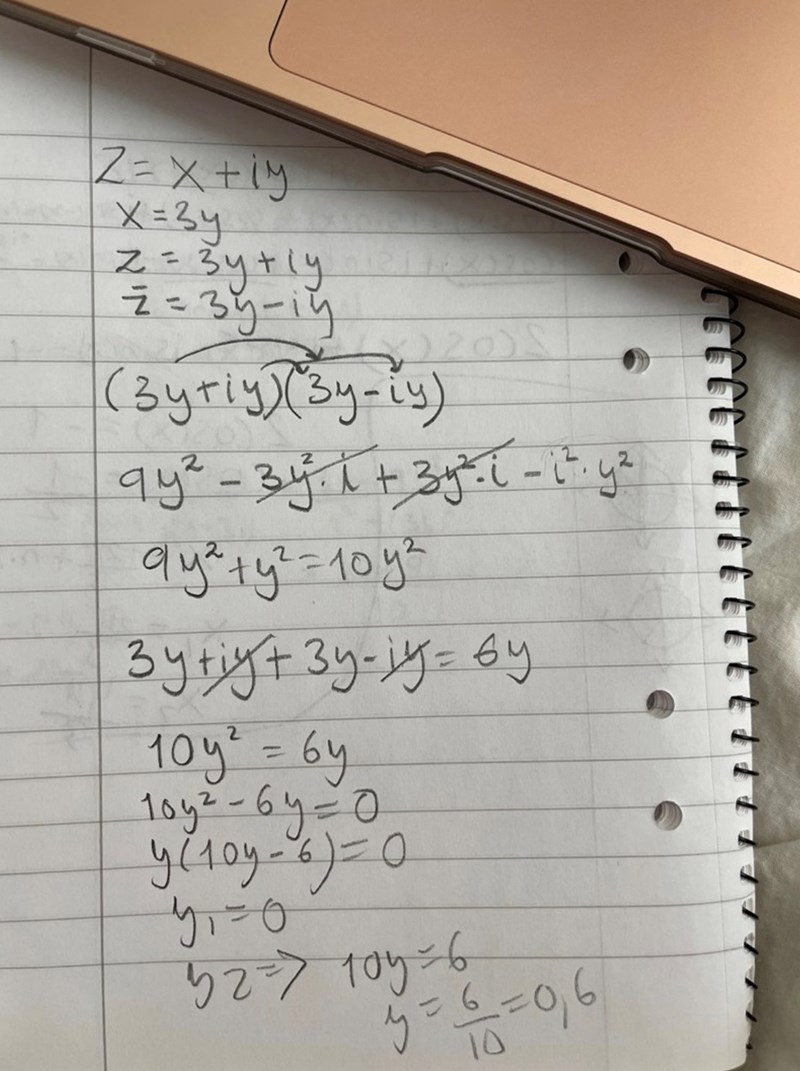 Z = x + iy
x = 3y
z = 3y + iy
z̄ = 3y - iy
(3y + iy)(3y - iy)
9y² - 3y²·i + 3y²·i - i²·y²
9y² + y² = 10y²
3y + iy + 3y - iy = 6y
10y² = 6y
10y² - 6y = 0
y(10y - 6) = 0
y₁ = 0
y2 => 10y = 6
y = 6/10 = 0,6